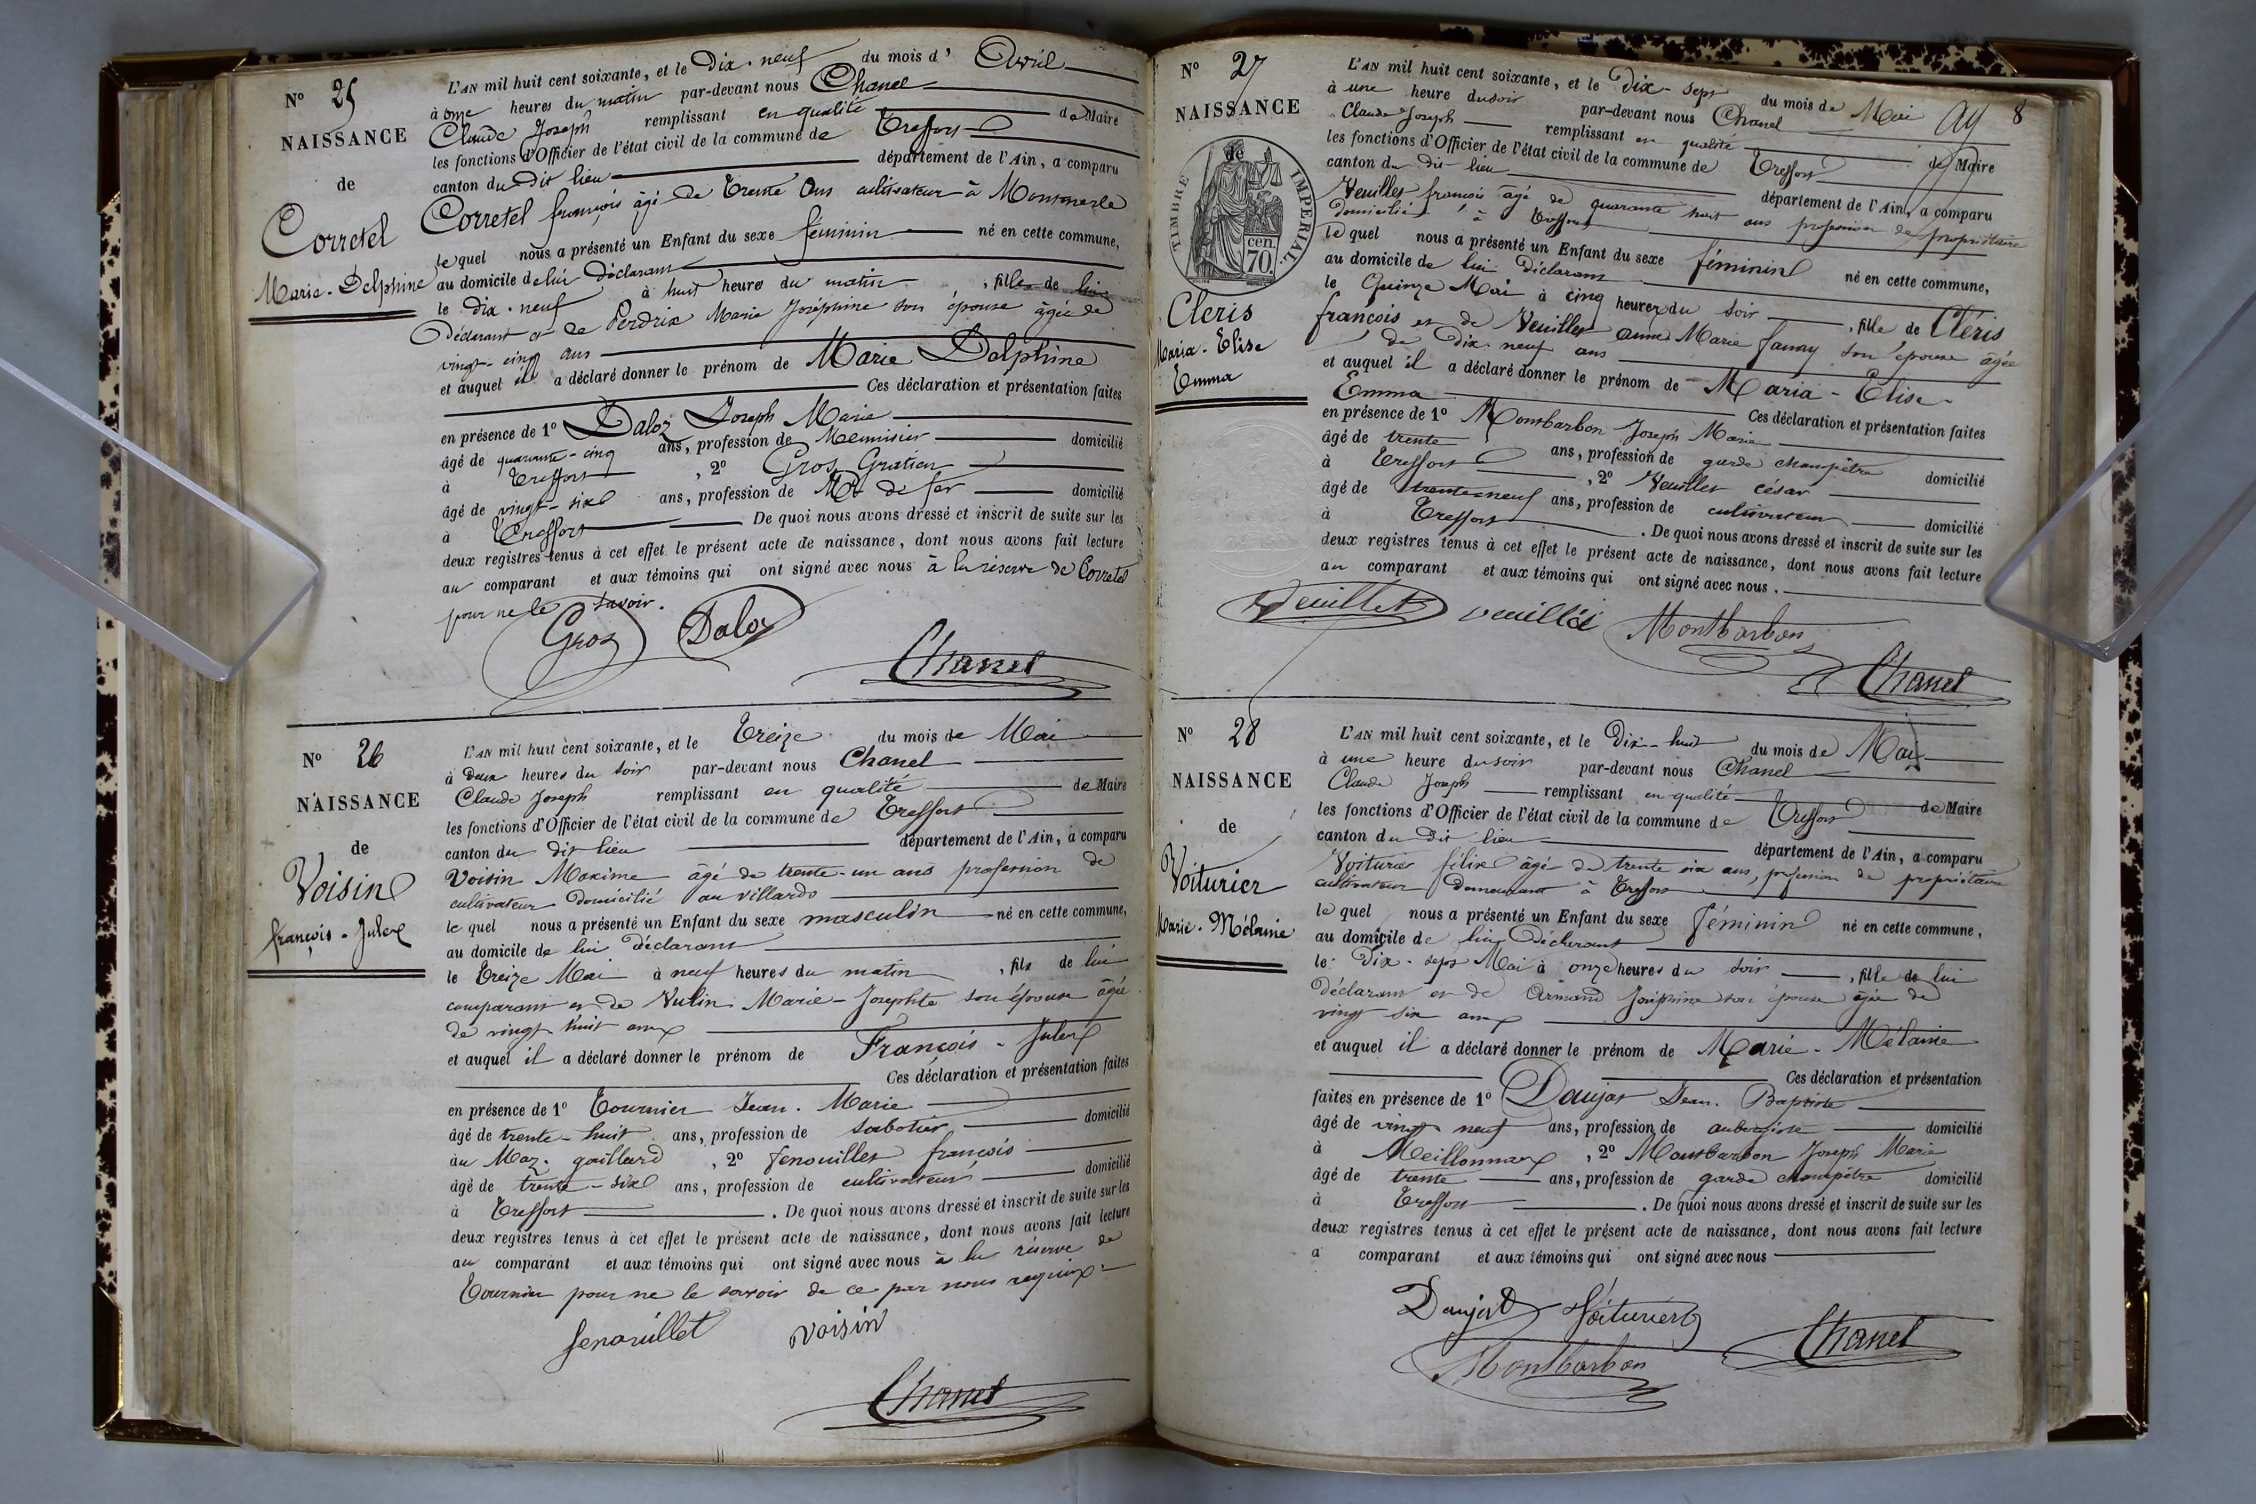 N° 25
NAISSANCE
de
Corretel
Marie-Delphine
L'AN mil huit cent soixante, et le Dix-neuf du mois d' Avril
à onze heures du matin par-devant nous Chanel
Claude Joseph remplissant en qualité de Maire
les fonctions d'Officier de l'état civil de la commune de Treffort
canton du dit lieu département de l'Ain, a comparu
Corretel françois âgé de Trente Ans cultivateur à Montmerle
le quel nous a présenté un Enfant du sexe féminin né en cette commune,
au domicile de lui Déclarant
le dix-neuf à huit heures du matin, fille de lui
Déclarant et de Perdrix Marie Joséphine son épouse âgée de
vingt-cinq ans
et auquel il a déclaré donner le prénom de Marie Delphine
Ces déclaration et présentation faites
en présence de 1° Daloz Joseph Marie
âgé de quarante-cinq ans, profession de Menuisier domicilié
à Treffort, 2° Gros Gratien
âgé de vingt-six ans, profession de Md de fer domicilié
à Treffort De quoi nous avons dressé et inscrit de suite sur les
deux registres tenus à cet effet le présent acte de naissance, dont nous avons fait lecture
au comparant et aux témoins qui ont signé avec nous à la réserve de Corretel
pour ne le savoir.
Gros Daloz
Chanel
N° 26
NAISSANCE
de
Voisin
françois-Jules
L'AN mil huit cent soixante, et le Treize du mois de Mai
à Deux heures du soir par-devant nous Chanel
Claude Joseph remplissant en qualité de Maire
les fonctions d'Officier de l'état civil de la commune de Treffort
canton du dit lieu département de l'Ain, a comparu
Voisin Maxime âgé de trente-un ans profession de
cultivateur domicilié au villards
le quel nous a présenté un Enfant du sexe masculin né en cette commune,
au domicile de lui déclarant
le Treize Mai à neuf heures du matin, fils de lui
comparant et de Vulin Marie-Josephte son épouse âgée
de vingt huit ans
et auquel il a déclaré donner le prénom de François-Jules
Ces déclaration et présentation faites
en présence de 1° Tournier Jean-Marie
âgé de trente-huit ans, profession de sabotier domicilié
au Maz-gaillard, 2° fenouillet françois
âgé de trente-six ans, profession de cultivateur domicilié
à Treffort. De quoi nous avons dressé et inscrit de suite sur les
deux registres tenus à cet effet le présent acte de naissance, dont nous avons fait lecture
au comparant et aux témoins qui ont signé avec nous à la réserve de
Tournier pour ne le savoir de ce par nous requis
fenouillet voisin
Chanel
N° 27
NAISSANCE
de
TIMBRE IMPERIAL.
70. cen.
Cleris
Maria-Elise
Emma
8
L'AN mil huit cent soixante, et le Dix-sept du mois de Mai
à une heure du soir par-devant nous Chanel
Claude Joseph remplissant en qualité de Maire
les fonctions d'Officier de l'état civil de la commune de Treffort
canton du dit lieu département de l'Ain, a comparu
Veuillet françois âgé de quarante huit ans profession de propriétaire
domicilié à Treffort
le quel nous a présenté un Enfant du sexe féminin né en cette commune,
au domicile de lui Déclarant
le Quinze Mai à cinq heures du soir, fille de Cléris
françois et de Veuillet anne Marie fanny son épouse âgée
de Dix-neuf ans
et auquel il a déclaré donner le prénom de Maria-Elise-
Emma Ces déclaration et présentation faites
en présence de 1° Montbarbon Joseph Marie
âgé de trente ans, profession de garde champêtre domicilié
à Treffort, 2° Veuillet césar
âgé de trente-neuf ans, profession de cultivateur domicilié
à Treffort. De quoi nous avons dressé et inscrit de suite sur les
deux registres tenus à cet effet le présent acte de naissance, dont nous avons fait lecture
au comparant et aux témoins qui ont signé avec nous.
Veuillet Veuillet Montbarbon
Chanel
N° 28
NAISSANCE
de
Voiturier
Marie-Mélanie
L'AN mil huit cent soixante, et le Dix-huit du mois de Mai
à une heure du soir par-devant nous Chanel
Claude Joseph remplissant en qualité de Maire
les fonctions d'Officier de l'état civil de la commune de Treffort
canton du dit lieu département de l'Ain, a comparu
Voiturier félix âgé de trente six ans, profession de propriétaire
cultivateur demeurant à Treffort
le quel nous a présenté un Enfant du sexe féminin né en cette commune,
au domicile de lui Déclarant
le Dix-sept Mai à onze heures du soir, fille de lui
Déclarant et de Armand Joséphine son épouse âgée de
vingt six ans
et auquel il a déclaré donner le prénom de Marie-Mélanie
Ces déclaration et présentation
faites en présence de 1° Daujat Jean-Baptiste
âgé de vingt neuf ans, profession de aubergiste domicilié
à Meillonnax, 2° Montbarbon Joseph Marie
âgé de trente ans, profession de garde champêtre domicilié
à Treffort. De quoi nous avons dressé et inscrit de suite sur les
deux registres tenus à cet effet le présent acte de naissance, dont nous avons fait lecture
a comparant et aux témoins qui ont signé avec nous
Daujat Voiturier
Chanel
Montbarbon